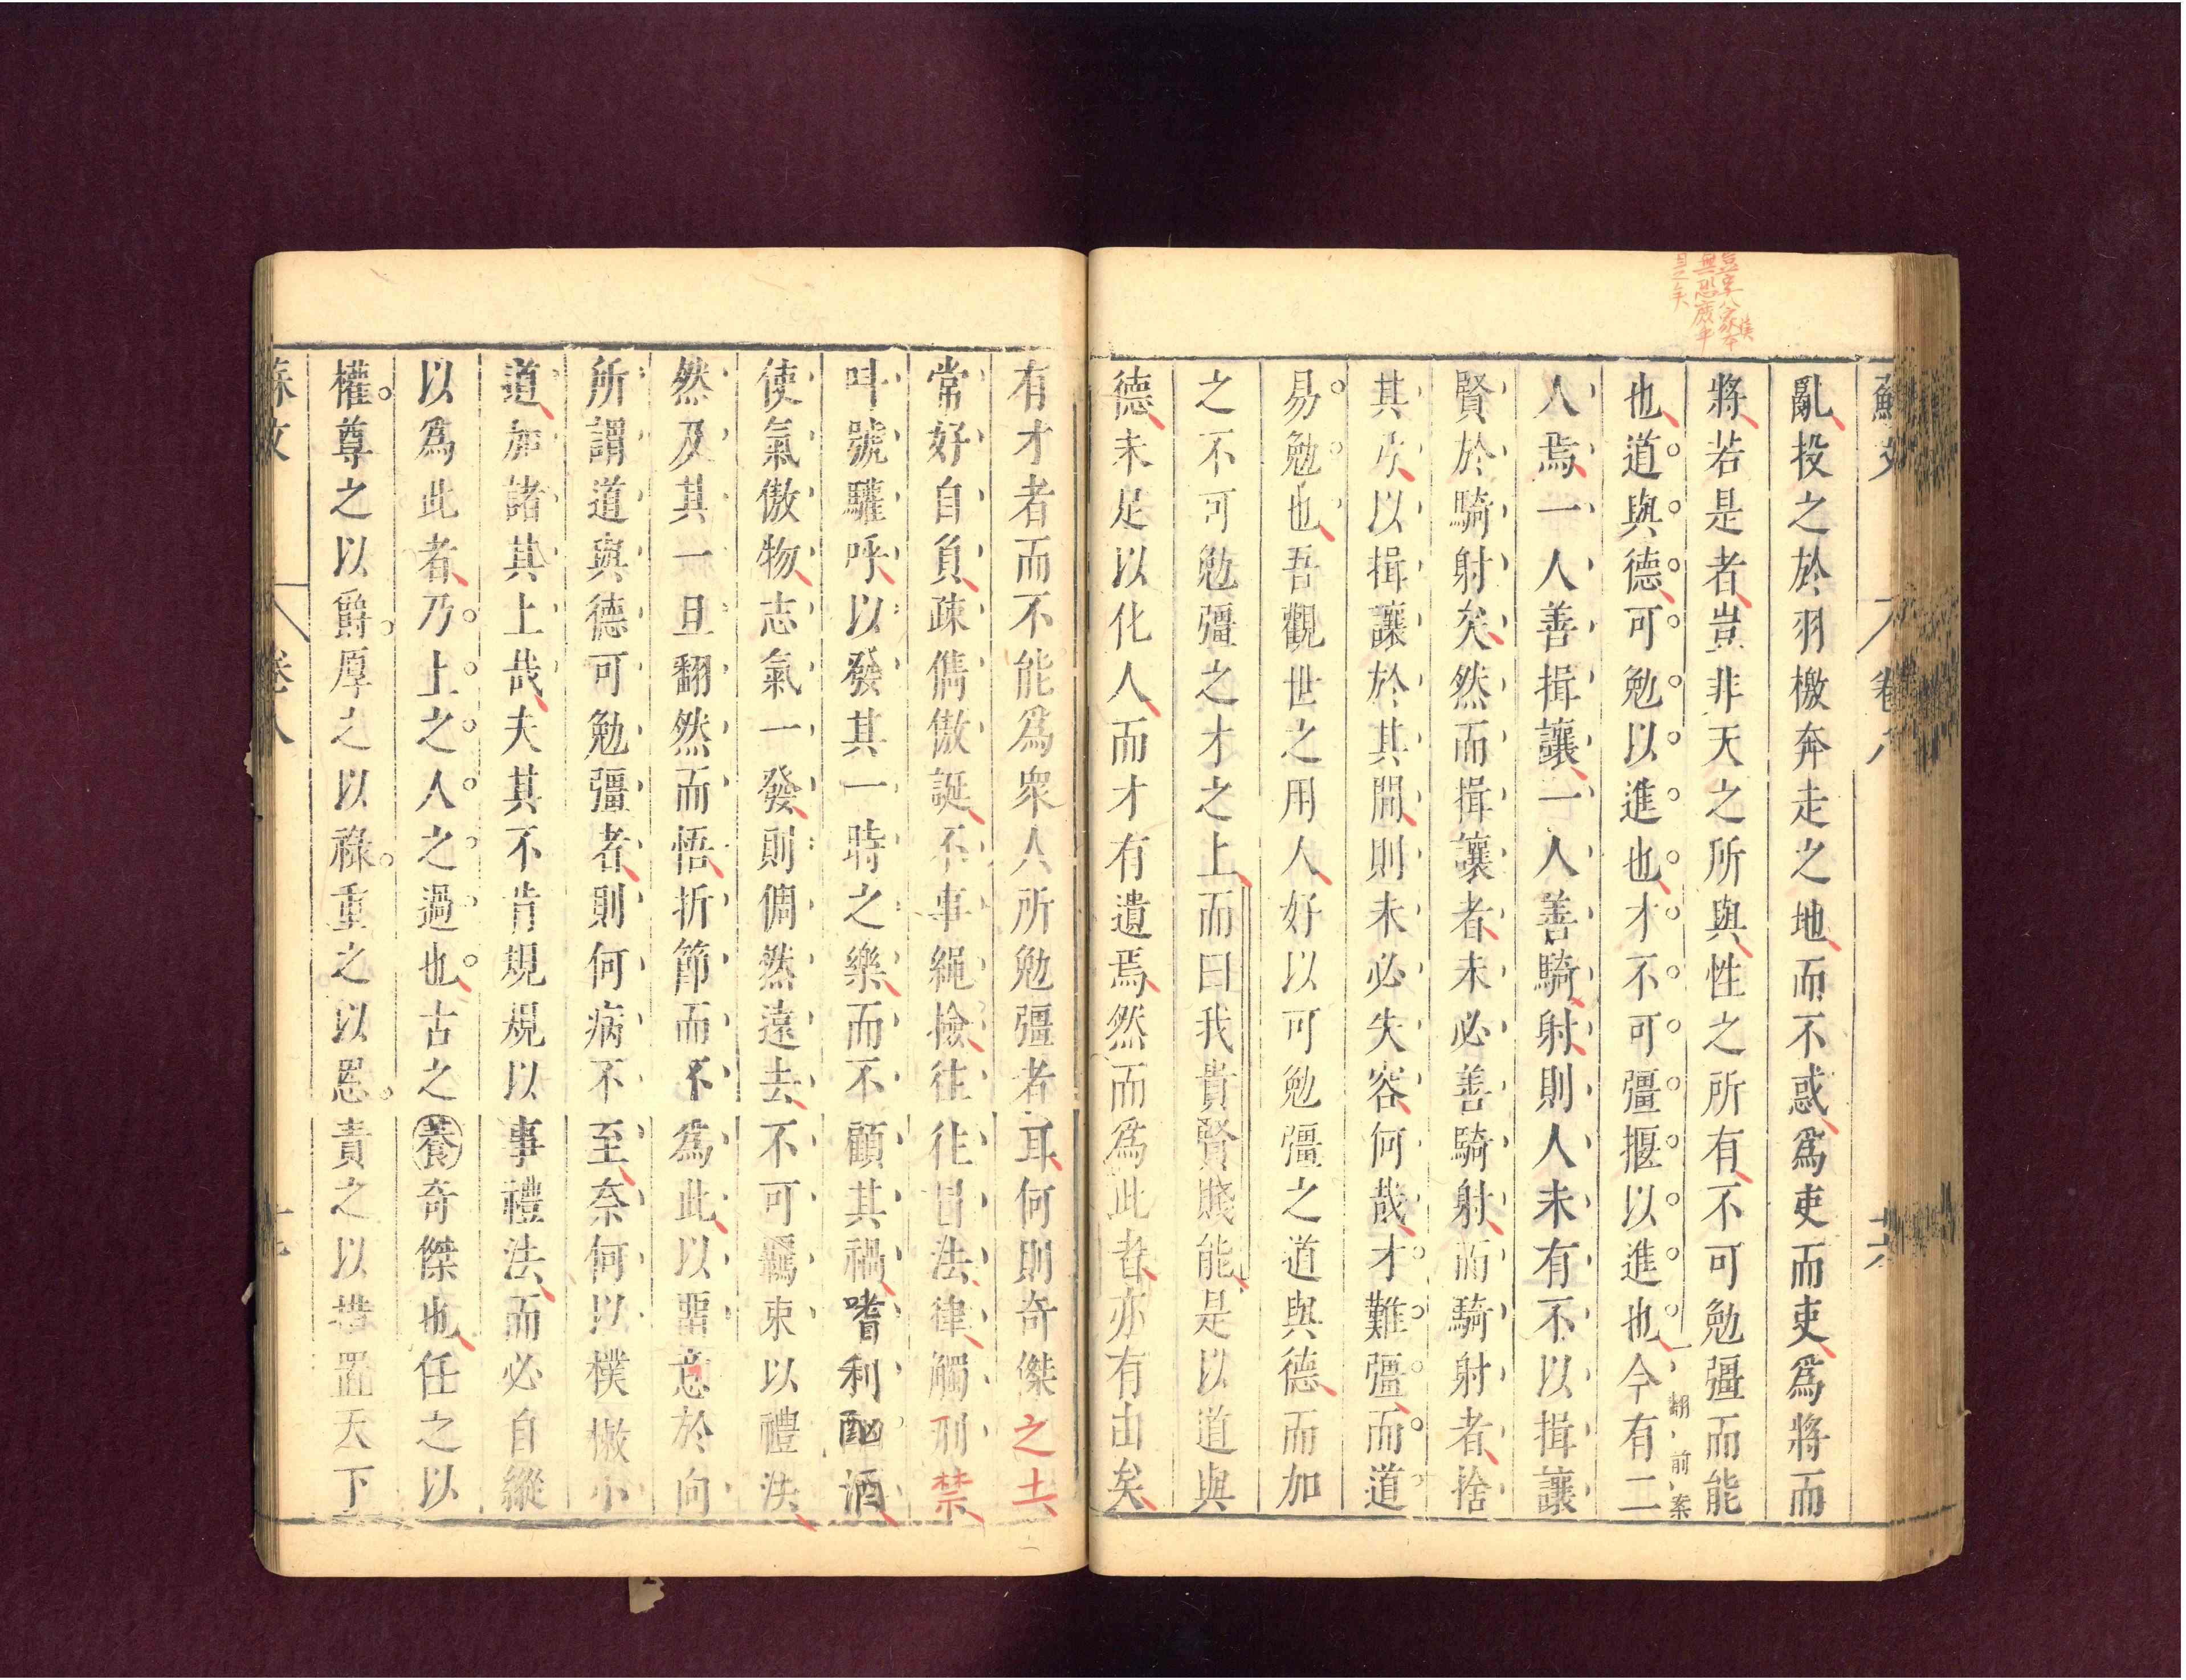 蘇文 卷八 十六
亂投之於羽檄奔走之地而不惑爲吏而吏爲將而
將若是者豈非天之所與性之所有不可勉彊而能
也道與德可勉以進也才不可彊揠以進也今有二
翻前案
人焉一人善揖讓一人善騎射則人未有不以揖讓
賢於騎射矣然而揖讓者未必善騎射而騎射者捨
其乃以揖讓於其間則未必失容何哉才難彊而道
易勉也吾觀世之用人好以可勉彊之道與德而加
之不可勉彊之才之上而曰我貴賢賤能是以道與
德未足以化人而才有遺焉然而爲此者亦有由矣
有才者而不能爲衆人所勉彊者耳何則奇傑之士
常好自負疎儁傲誕不事繩檢往往冒法律觸刑禁
叫號驩呼以發其一時之樂而不顧其禍嗜利酗酒
使氣傲物志氣一發則倜然遠去不可羈束以禮法
然及其一旦翻然而悟折節而不爲此以留意於向
所謂道與德可勉彊者則何病不至奈何以樸樕小
道加諸其上哉夫其不肯規規以事禮法而必自縱
以爲此者乃上之人之過也古之養奇傑也任之以
權尊之以爵厚之以祿重之以恩責之以措置天下
蘇文 卷八